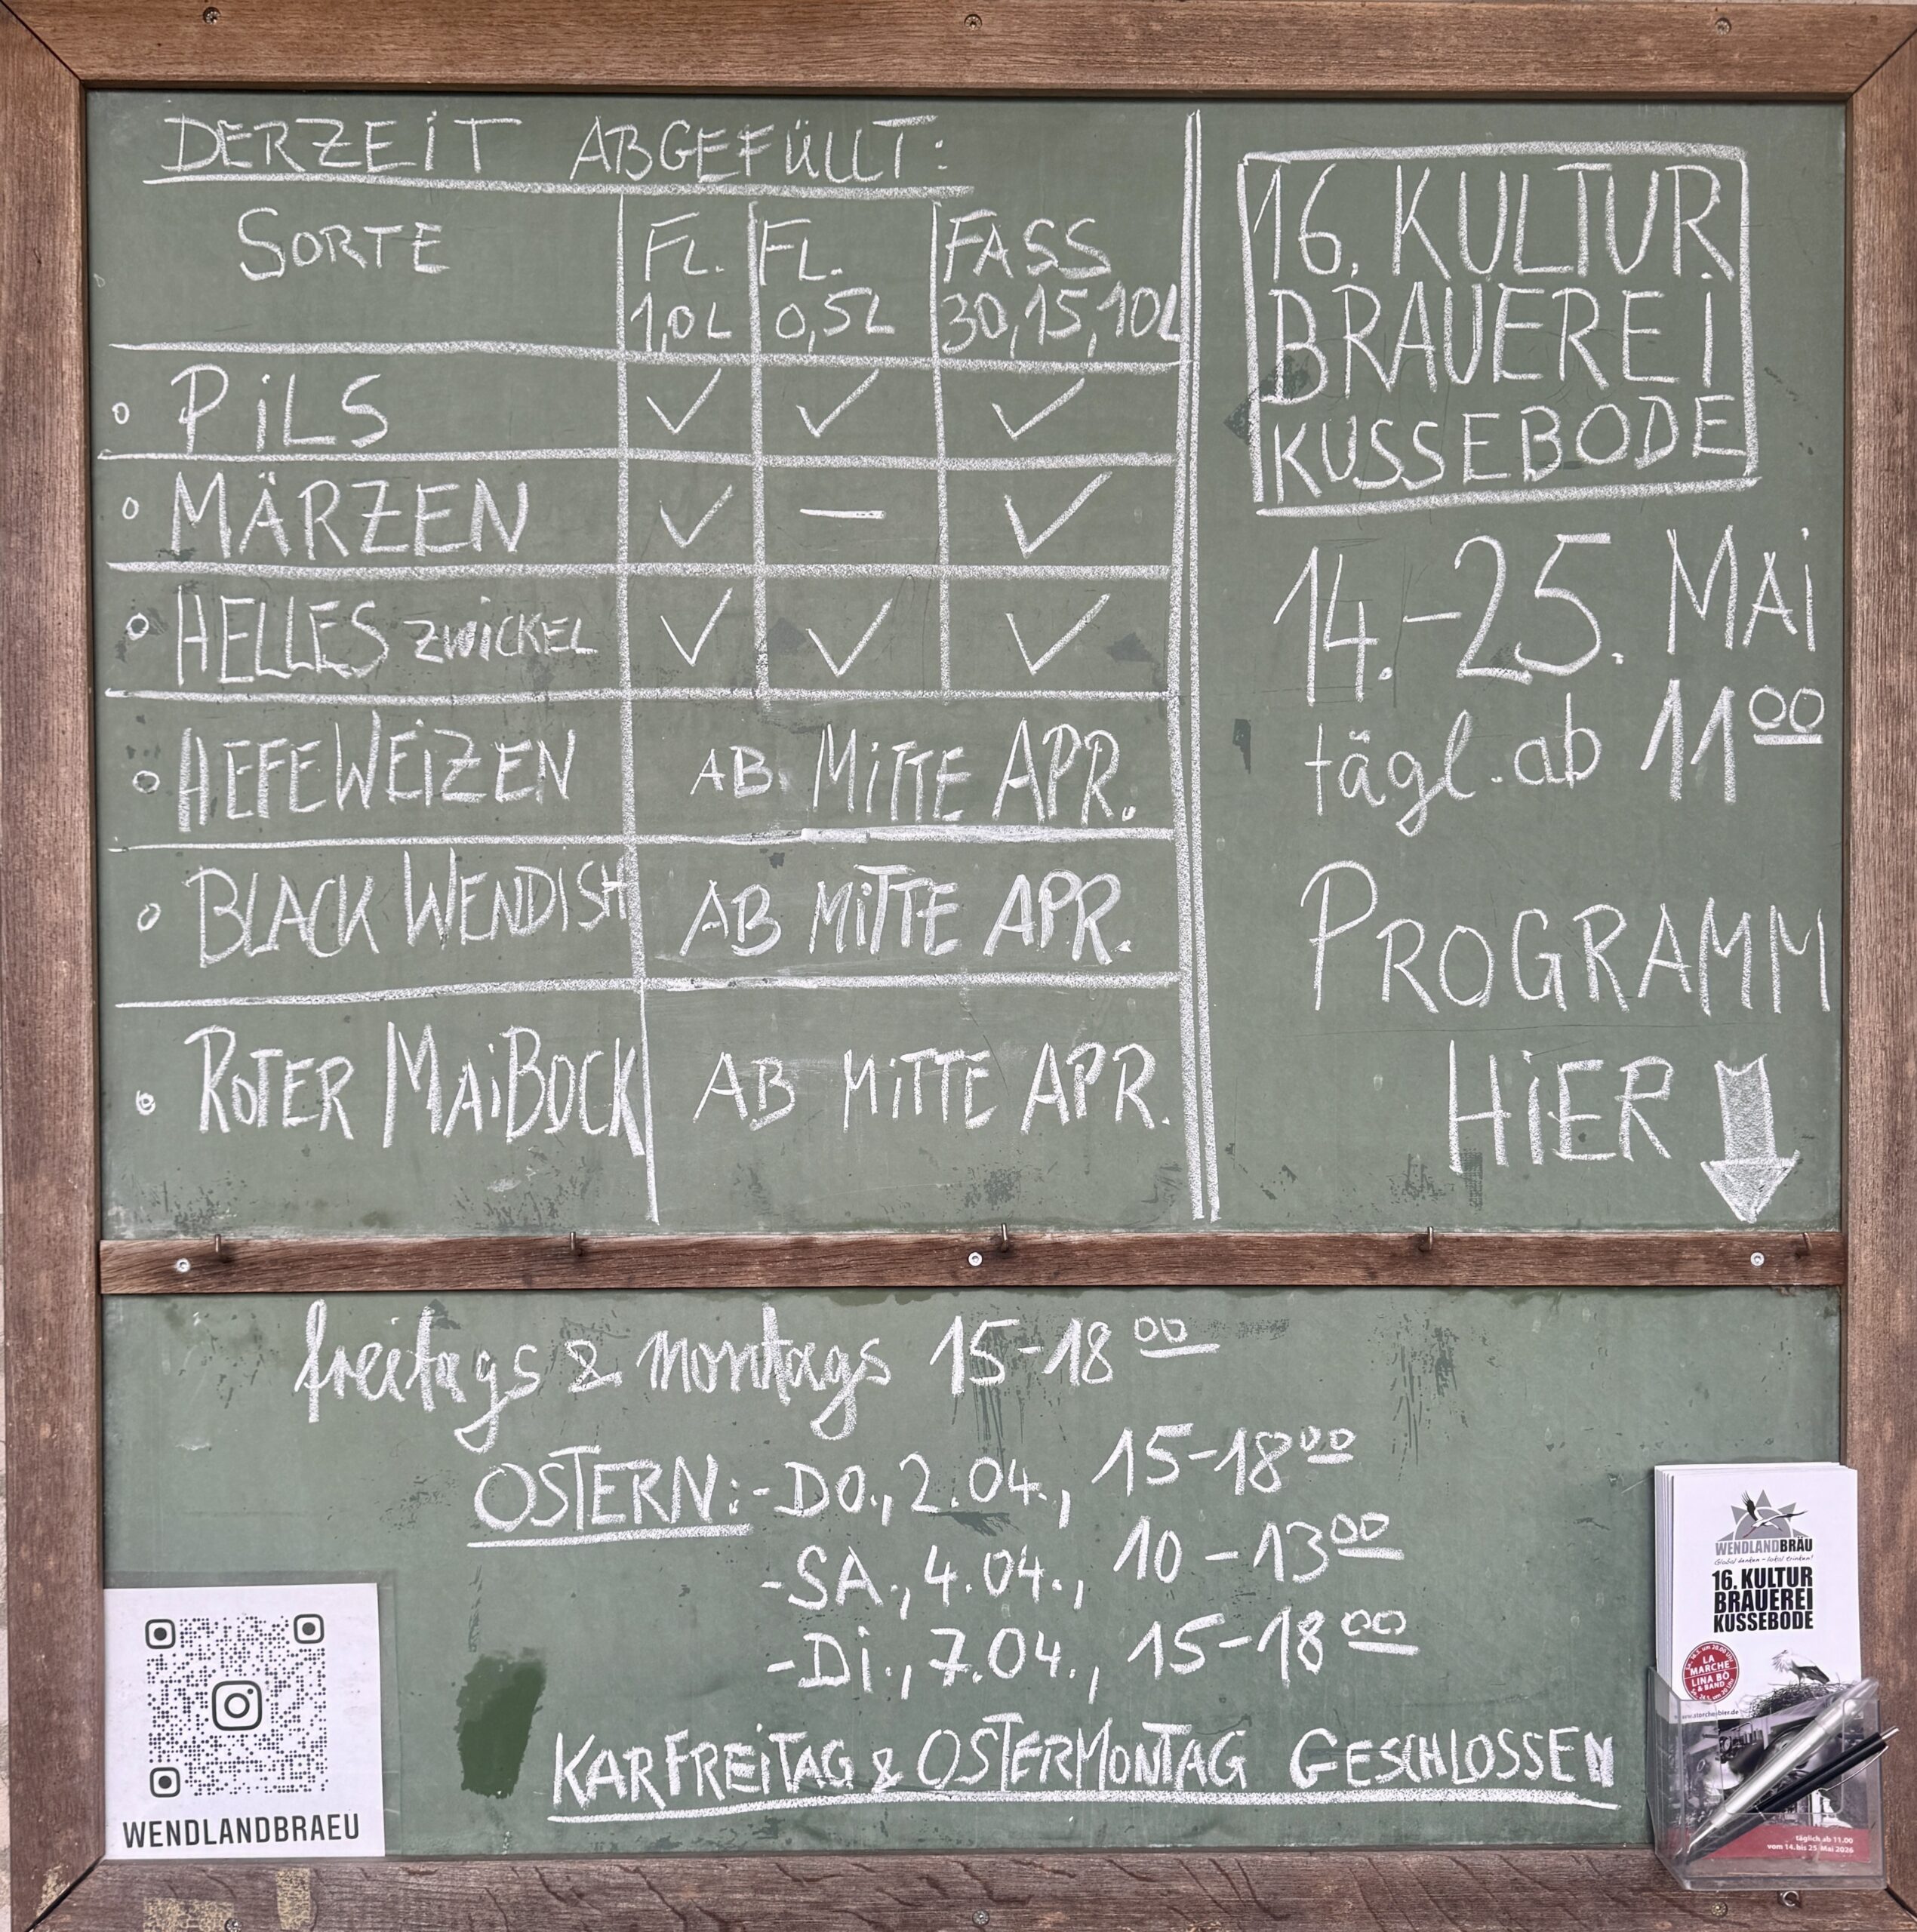 DERZEIT ABGEFÜLLT:
SORTE FL. 1,0L FL. 0,5L FASS 30,15,10L
PILS ✓ ✓ ✓
MÄRZEN ✓ — ✓
HELLES ZWICKEL ✓ ✓ ✓
HEFEWEIZEN AB MITTE APR.
BLACK WENDISH AB MITTE APR.
ROTER MAIBOCK AB MITTE APR.
16. KULTUR
BRAUEREI
KUSSEBODE
14.-25. MAI
tägl. ab 11 00
PROGRAMM
HIER
freitags & montags 15-18 00
OSTERN: -DO., 2.04., 15-18 00
-SA., 4.04., 10-13 00
-DI., 7.04., 15-18 00
KARFREITAG & OSTERMONTAG GESCHLOSSEN
WENDLANDBRAEU
WENDLANDBRÄU
Global denken - lokal trinken!
16. KULTUR
BRAUEREI
KUSSEBODE
LA
MARCHE
LINA BÖ
& BAND
täglich ab 11.00
vom 14. bis 25. Mai 2026